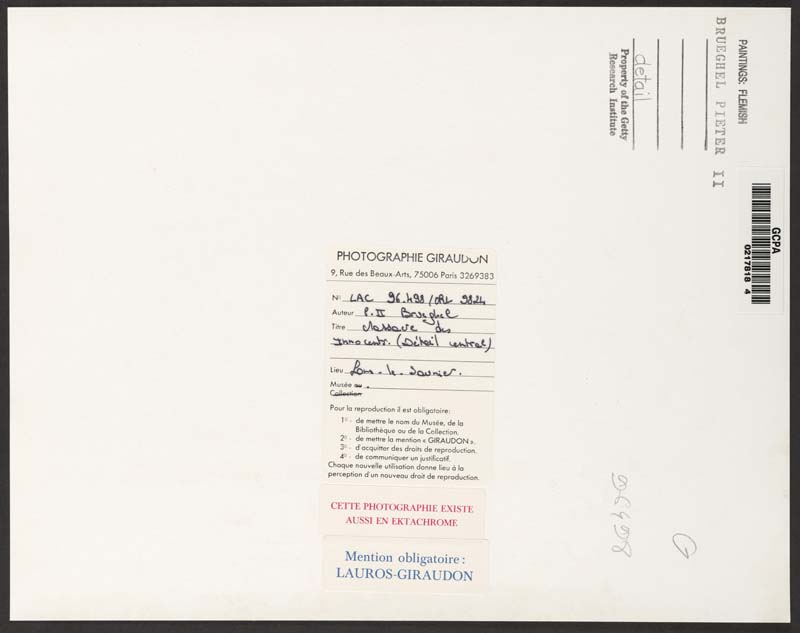 PAINTINGS: FLEMISH
BRUEGHEL PIETER II
detail
Property of the Getty
Research Institute
GCPA
0217818 4
PHOTOGRAPHIE GIRAUDON
9, Rue des Beaux-Arts, 75006 Paris 3269383
No LAC 96.498 / 9824
Auteur P. II Brueghel
Titre Massacre des
Innocents. (Détail central)
Lieu Lons-le-Saunier.
Musée au.
Collection
Pour la reproduction il est obligatoire:
1o - de mettre le nom du Musée, de la
Bibliothèque ou de la Collection.
2o - de mettre la mention « GIRAUDON ».
3o - d'acquitter des droits de reproduction.
4o - de communiquer un justificatif.
Chaque nouvelle utilisation donne lieu à la
perception d'un nouveau droit de reproduction.
CETTE PHOTOGRAPHIE EXISTE
AUSSI EN EKTACHROME
Mention obligatoire :
LAUROS-GIRAUDON
G